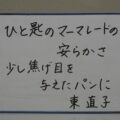 ひと匙のマーマレードの
安らかさ
少し焦げ目を
与えたパンに
東直子